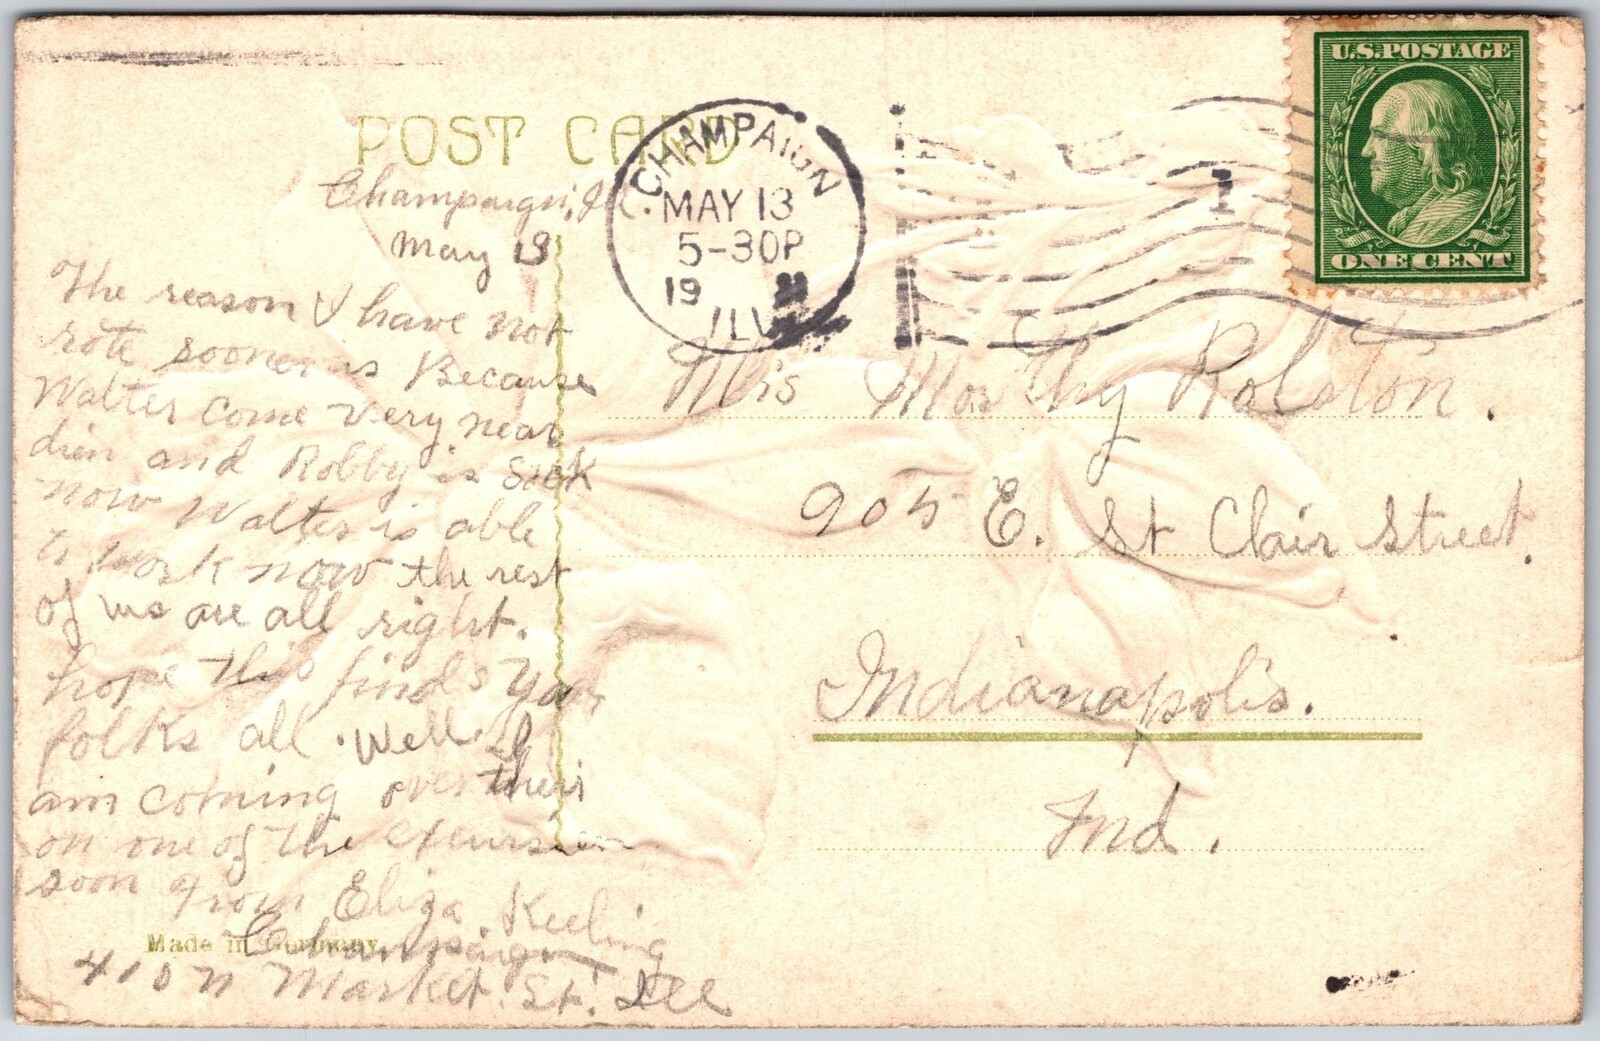 POST CARD
CHAMPAIGN
MAY 13
5-30P
19
ILL
1
U.S. POSTAGE
ONE CENT
Champaign, Ill.
May 13
The reason I have not
rote sooner is Because
Walter come very near
dien and Robby is sick
now Walter is able
to work now the rest
of us are all right.
hope this finds your
folks all. Well. I
am coming over their
on one of the excursien
soon from Eliza Keeling
Champaign
410 N Market. St. Ill
Made in Germany
Mis Ralston.
905 E. St Clair Street.
Indianapolis.
Ind.